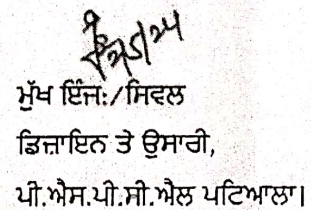 ਮੁੱਖ ਇੰਜ:/ਸਿਵਲ
ਡਿਜ਼ਾਇਨ ਤੇ ਉਸਾਰੀ,
ਪੀ.ਐਸ.ਪੀ.ਸੀ.ਐਲ ਪਟਿਆਲਾ।